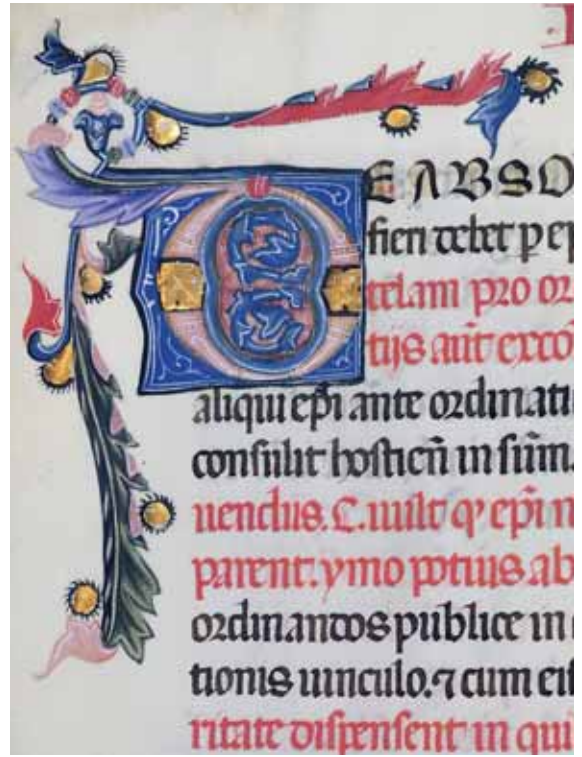 DE ABSO
fieri debet p ep
telam pro or
tijs aūt excō
aliqui ep̄i ante ordinati
consulit hostien̄ in sūm.
uendus. C. uult q' ep̄i n
parent. ymo potius ab
ordinandos publice in
tionis uinculo. ⁊ cum eis
ritate dispensent in qui